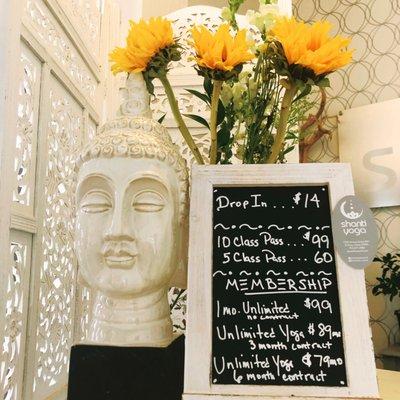 Drop In . . . $14
10 Class Pass . . . $99
5 Class Pass . . . 60
MEMBERSHIP
1 mo. Unlimited $99
no contract
Unlimited Yoga $89/mo
3 month contract
Unlimited Yoga $79/mo
6 month contract
shanti
yoga
S